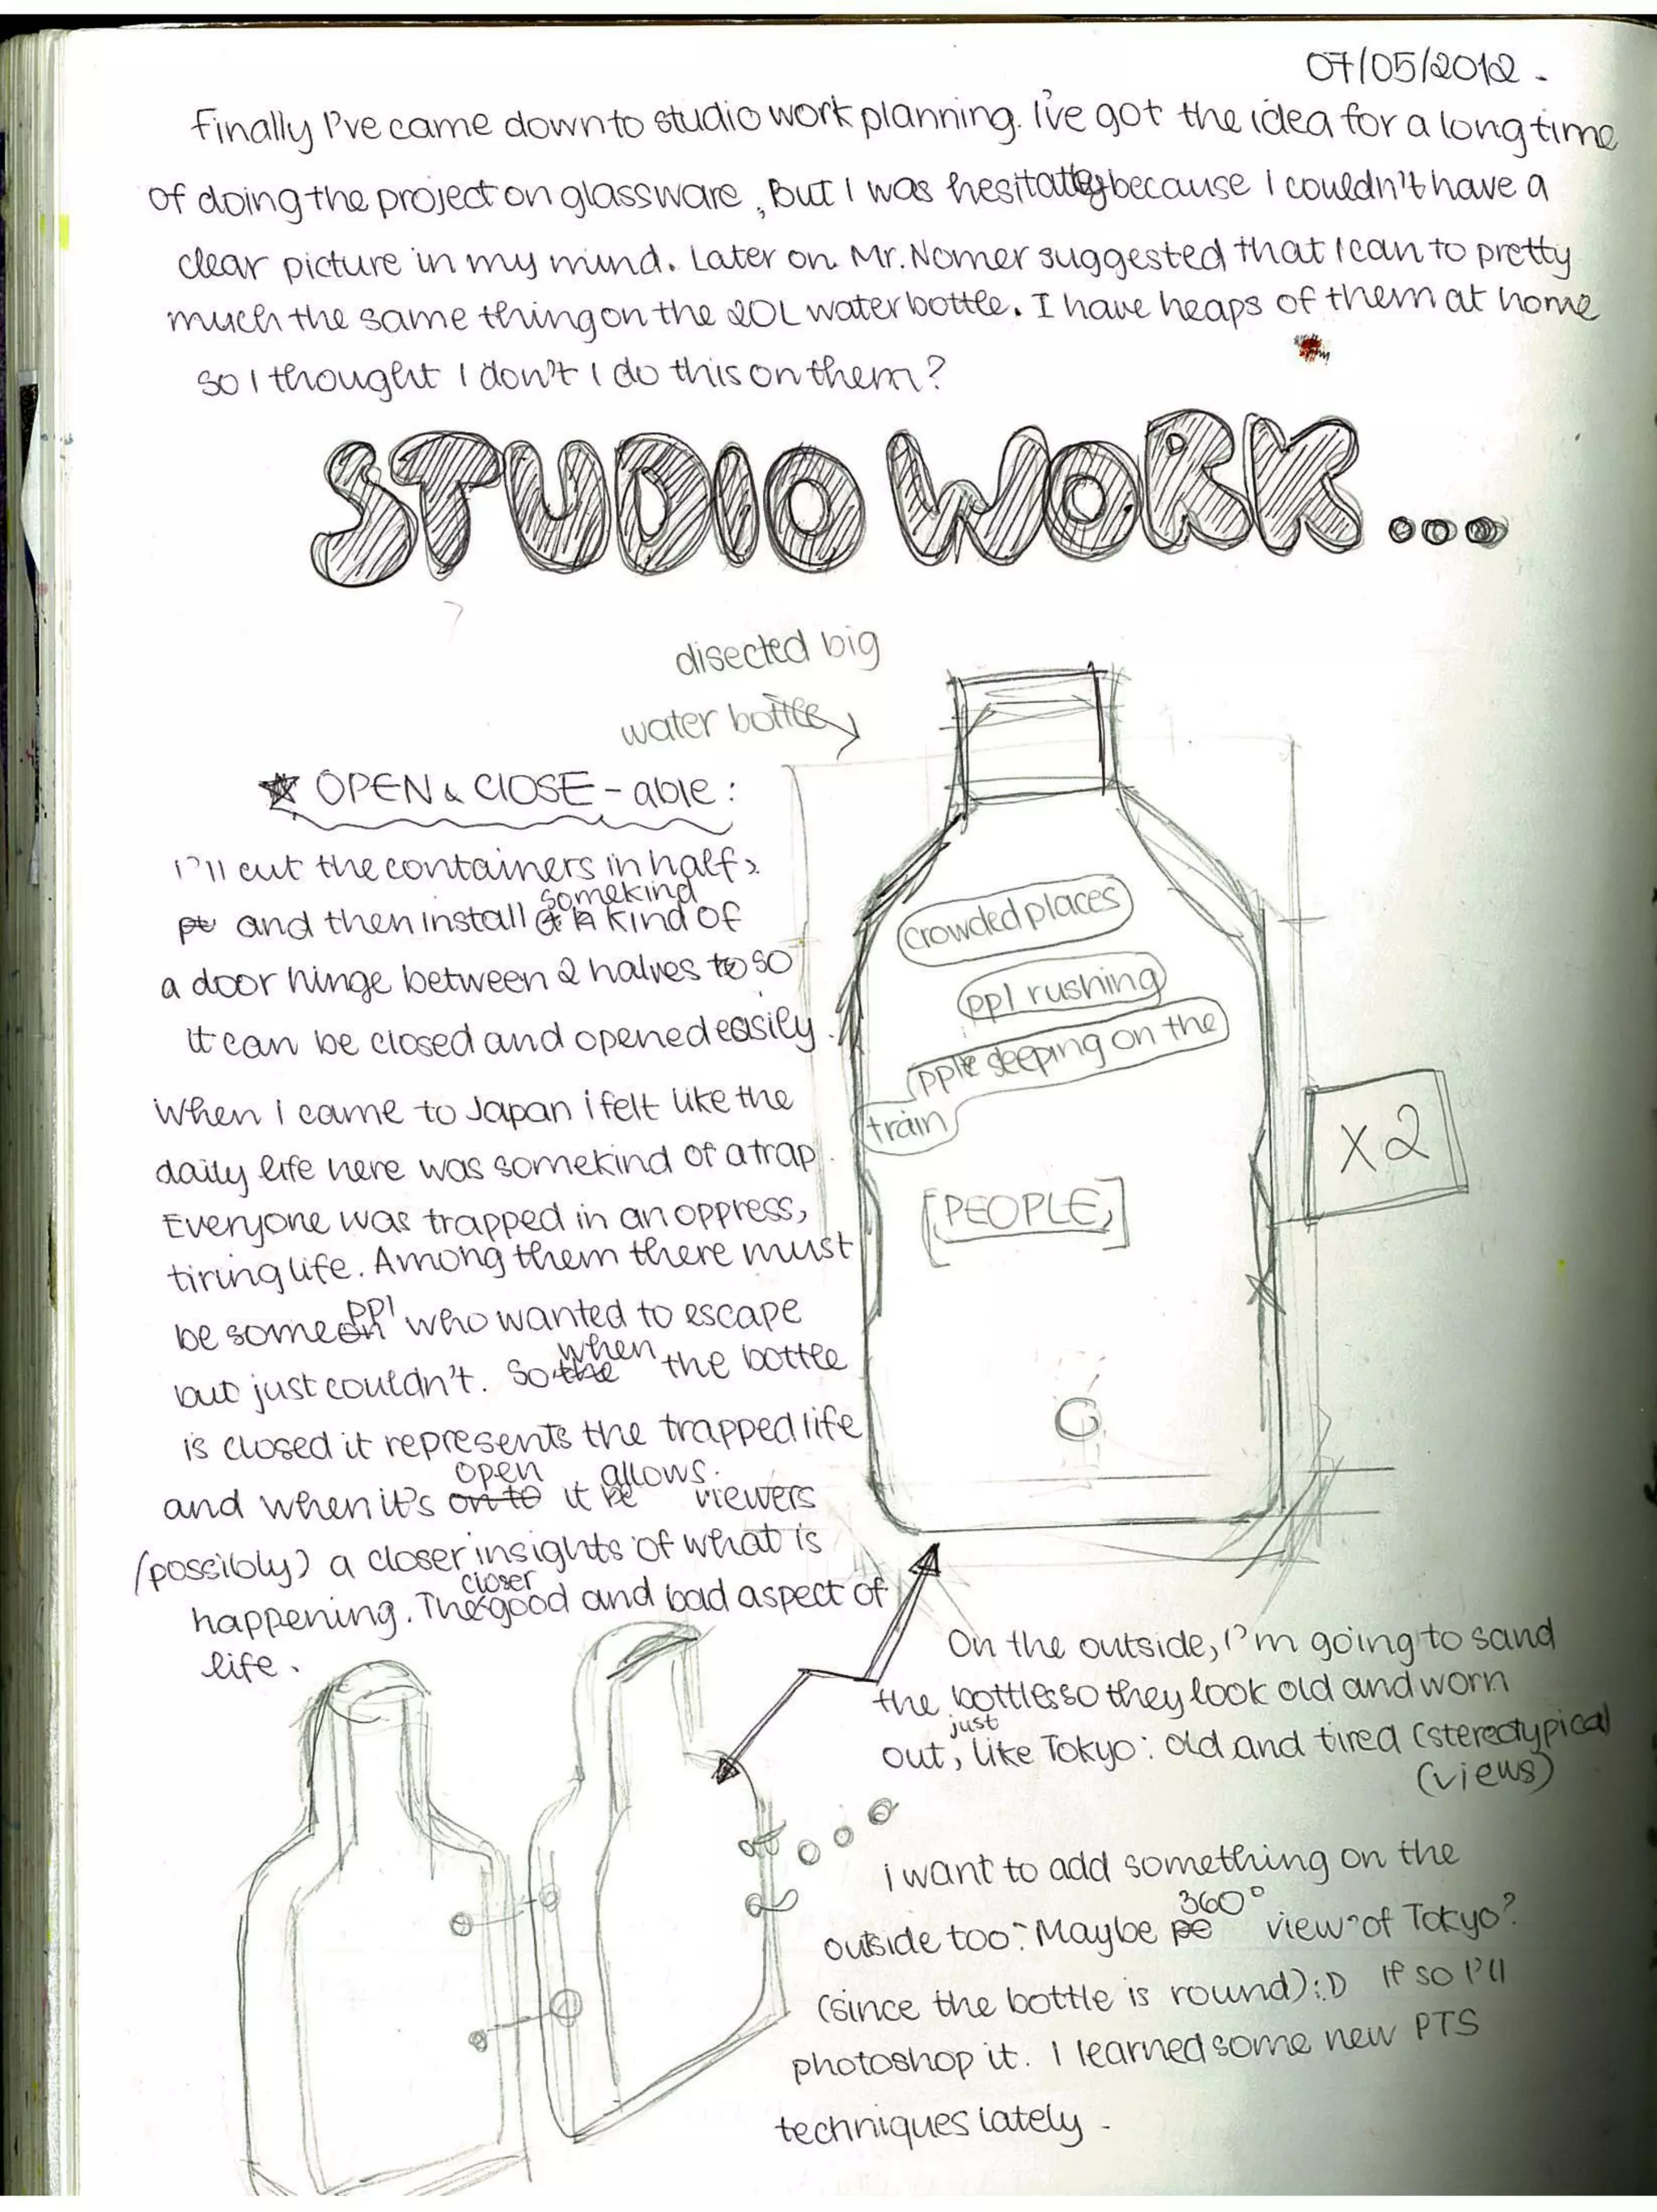 07/05/2012 -
Finally I've came down to studio work planning. I've got the idea for a long time
of doing the project on glassware, But I was because I couldn't have a
clear picture in my mind. Later on Mr. Nomer suggested that I can to pretty
much the same thing on the 20L water bottle. I have heaps of them at home
so I thought I don't I do this on them?
STUDIO WORK...
disected big
water bottle
OPEN & ClOSE - able:
I'll cut the containers in half,
and then install somekind kind of
a door hinge between 2 halves so
it can be closed and opened easily.
When I came to Japan i felt like the
daily life here was somekind of a trap.
Everyone was trapped in an oppress,
tiring life. Among them there must
be some ppl who wanted to escape
but just couldn't. So when the bottle
is closed it represents the trapped life
and when it's open it allows viewers
(possibly) a closer insights of what is
happening. The closer good and bad aspect of
life.
crowded places
ppl rushing
pple sleeping on the
train
[PEOPLE,]
X2
On the outside, I'm going to sand
the bottles so they look old and worn
out, just like Tokyo: old and tired (stereotypical
(views)
i want to add something on the
outside too: Maybe 360° view of Tokyo?
(since the bottle is round) :D If so I'll
photoshop it. I learned some new PTS
techniques lately -